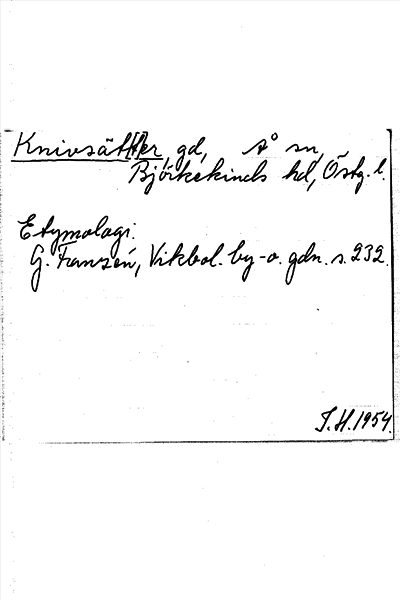 Knivsätt[t]er, gd, Å sn,
Björkekinds hd, Östg. l.
Etymologi.
G. Franzén, Vikbol. by- o. gdn. s. 232.
J.H. 1954.